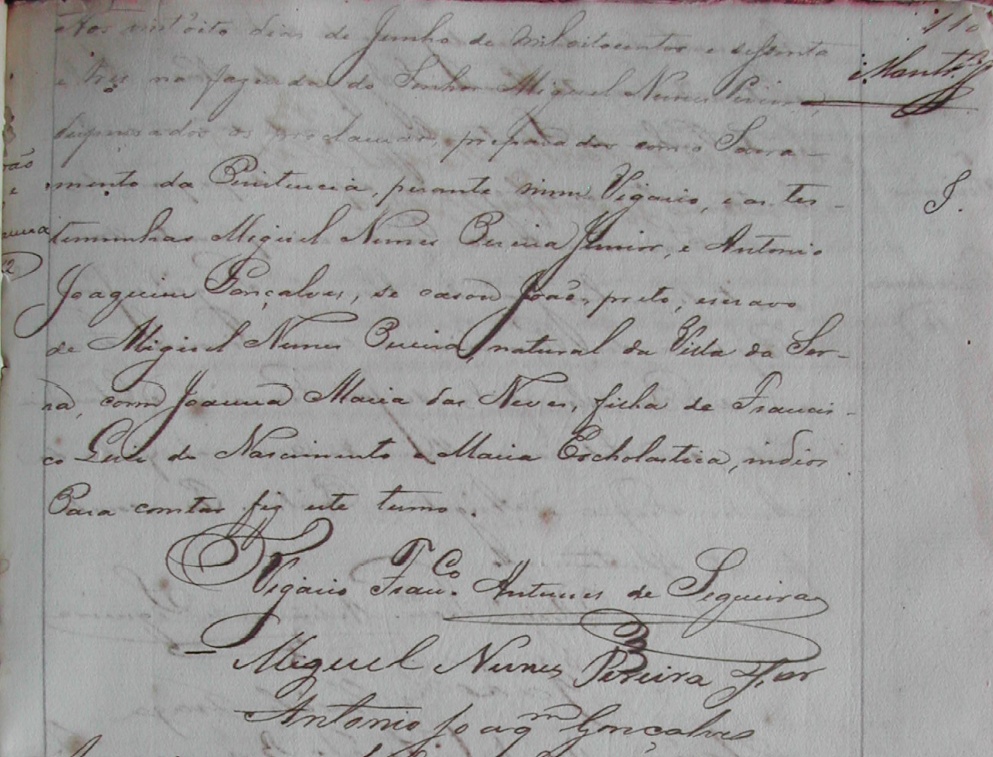 110
Aos vint'oito dias de Junho de mil oitocentos e sessenta
e tres na fazenda do Senhor Miguel Nunes Pereira,
dispensados os proclamas, preparados com o Sacra-
mento da Penitencia, perante mim Vigario, e as tes-
temunhas Miguel Nunes Pereira Junior, e Antonio
Joaquim Gonçalves, se casou João, preto, escravo
de Miguel Nunes Pereira, natural da Villa da Ser-
ra, com Joanna Maria das Neves, filha de Francis-
co Luis do Nascimento e Maria Escholastica, indios
Para constar fiz este termo.
Vigario Franco. Antunes de Sequeira
Miguel Nunes Pereira Jor
Antonio Joaqm Gonçalves
J.